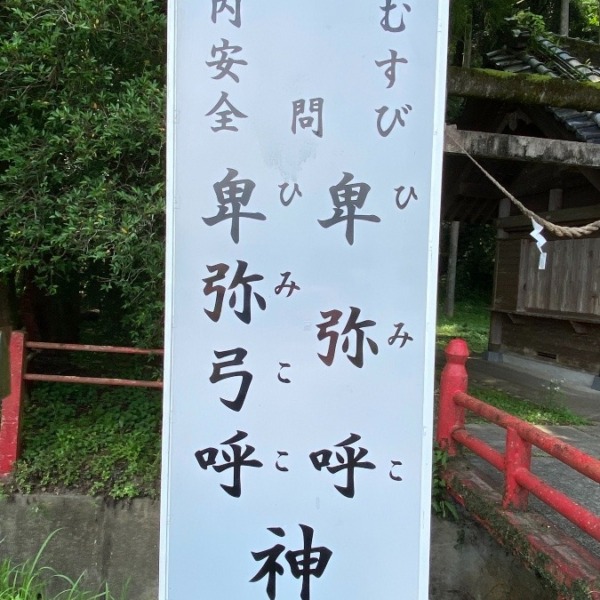 むすび
卑弥呼
ひみこ
問
神
内安全
卑弥弓呼
ひみここ